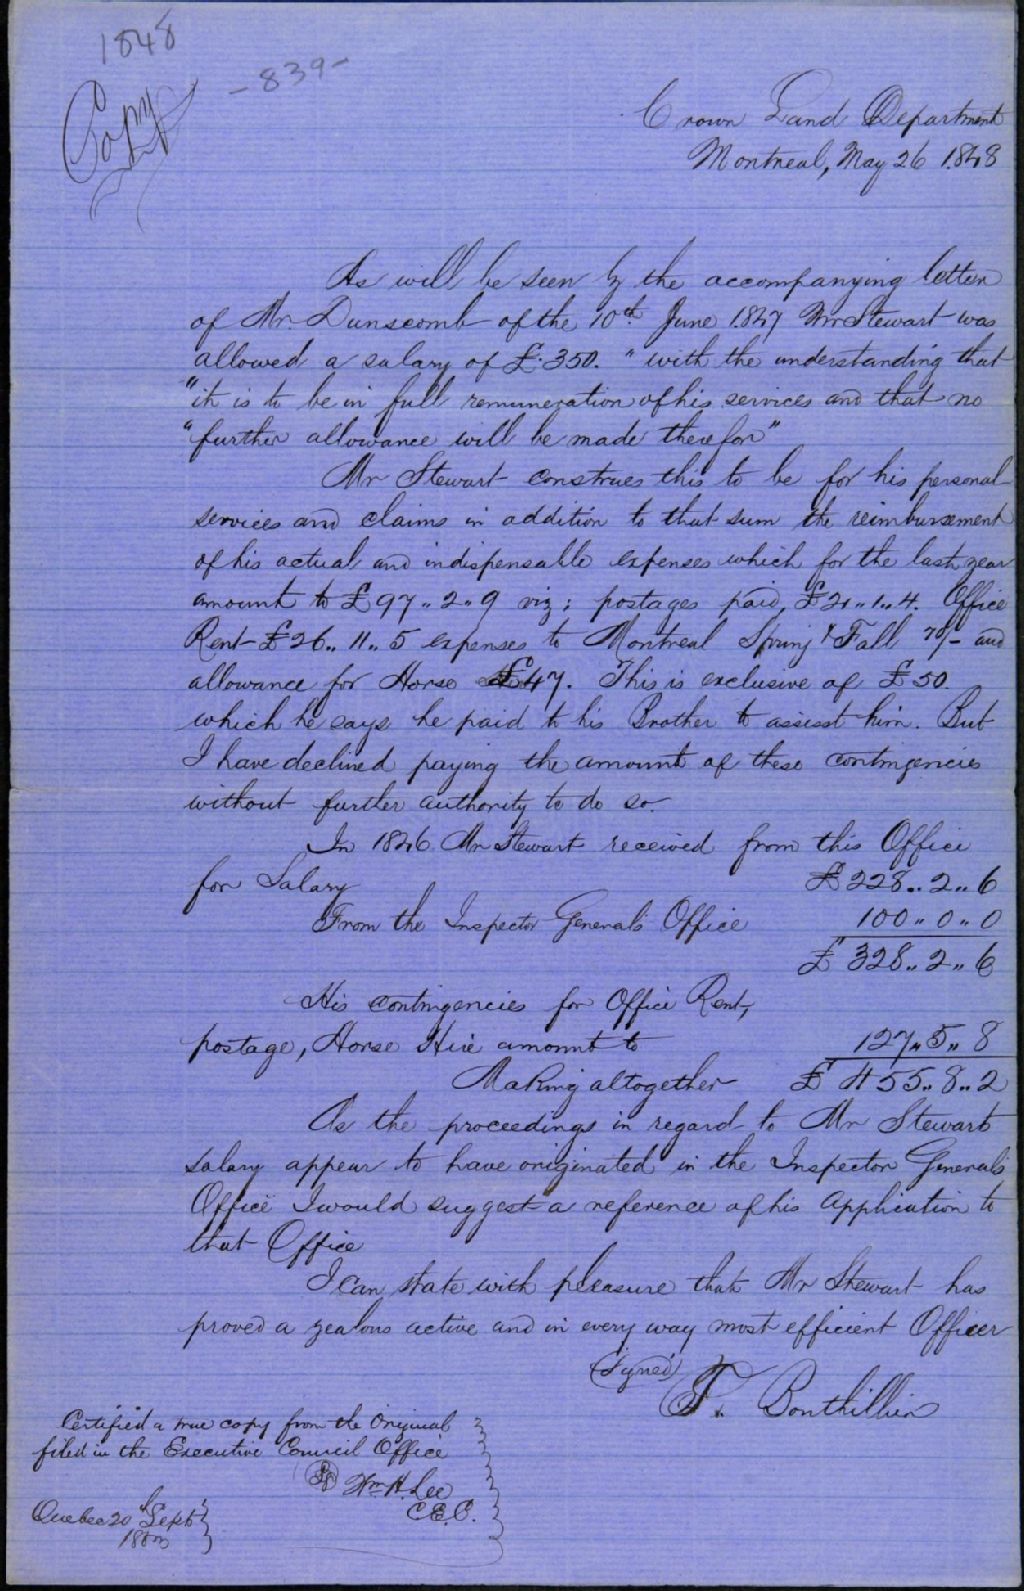 1848
-839-
Copy
Crown Land Department
Montreal, May 26 1848
As will be seen by the accompanying letter
of Mr. Dunscomb of the 10th June 1847 Mr Stewart was
allowed a salary of £.350. "with the understanding that
"it is to be in full remuneration of his services and that no
"further allowance will be made therefor"
Mr Stewart construes this to be for his personal
services and claims in addition to that sum the reimbursement
of his actual and indispensable expenses which for the last year
amount to £97,,2,,9 viz: postages paid, £21,,1,,4. Office
Rent £26,,11,,5 expenses to Montreal Spring & Fall 70/- and
allowance for Horse £47. This is exclusive of £50.
which he says he paid to his Brother to assisst him. But
I have declined paying the amount of these contingencies
without further authority to do so.
In 1846 Mr Stewart received from this Office
for Salary £228,,2,,6
From the Inspector General's Office 100,,0,,0
£328,,2,,6
His contingencies for Office Rent,
postage, Horse Hire amount to 127,,5,,8
Making altogether £455,,8,,2
As the proceedings in regard to Mr Stewarts
salary appear to have originated in the Inspector General's
Office I would suggest a reference of his Application to
that Office
I can state with pleasure that Mr Stewart has
proved a zealous active and in every way most efficient Officer
(Signed)
T. Bouthillier
Certified a true copy from the Original
filed in the Executive Council Office
Wm. H. Lee
C.E.C.
Quebec 20th Sept